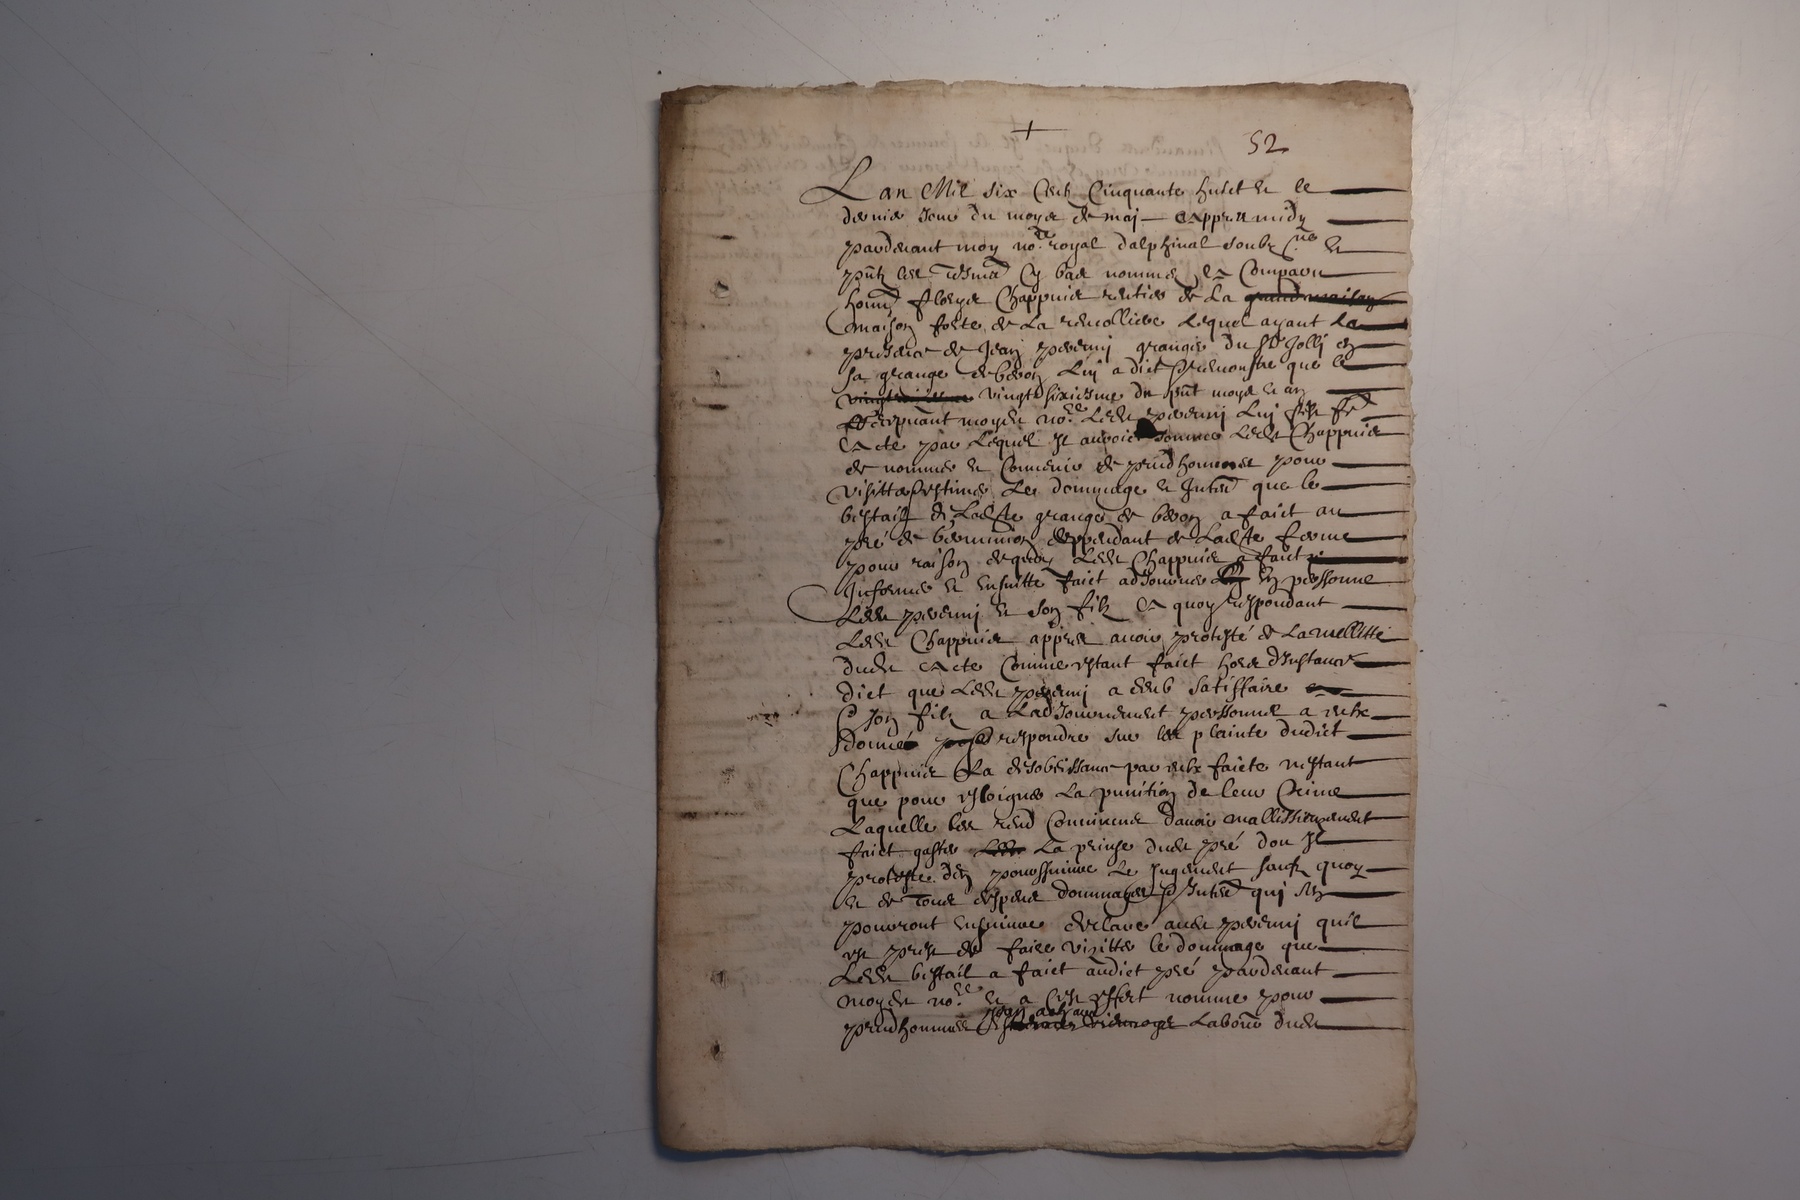 52
Lan Mil six Cents Cinquante huict & le
dernier Jour du moys de maj appres midy
pardevant moy no.re royal dalphinal soubz.ne &
pñts les tesmo. Cy bas nommes, a Comparu
honn. Chappuis rentier de La
maison forte de La Lequel ayant La
presence de Jean peverinj granger du Sr Jollj en
sa grange de bevon Luy a dict & remonstre que le
vingt sixiesme du pñt moys & an
pardevant moydit no.re Ledit peverinj Luj fist
Acte par Lequel Il auroit sommes Ledit Chappuis
de nommer & Convenir de prudhommes pour
visitter & estimer Les dommage & Interes que le
bestail de Ladite grange de bevon a faict au
pré de dependant de Ladite ferme
pour raison dequoy Ledit Chappuis a faict
Informer & Ensuitte faict adjourner En personne
Ledit peverinj & son filz A quoy respondant
Ledit Chappuis appres avoir protesté de La nullitté
dudit Acte Comme estant faict hors dInstance
dict que Ledit peverinj a deub satisffaire
& son filz a Ladjournement personnel a eulx
donnés respondre sur les plainte dudict
Chappuis La desobeissance par eulx faicte nestant
que pour esloigner La punition de leur Crime
Laquelle les rend Convincus davoir mallissieusement
faict gaster La prinse dudit pré dou Il
proteste den poursuivre Le Jugement sauf quoy
& de tous despens dommages & Interes qui sen
pourront Ensuivre declare audit peverinj quil
est prest de faire visitter le dommage que
Ledit bestail a faict audict pré pardevant
moydit no.re & a Cest effect nomme pour
prudhommes Labour. dudit